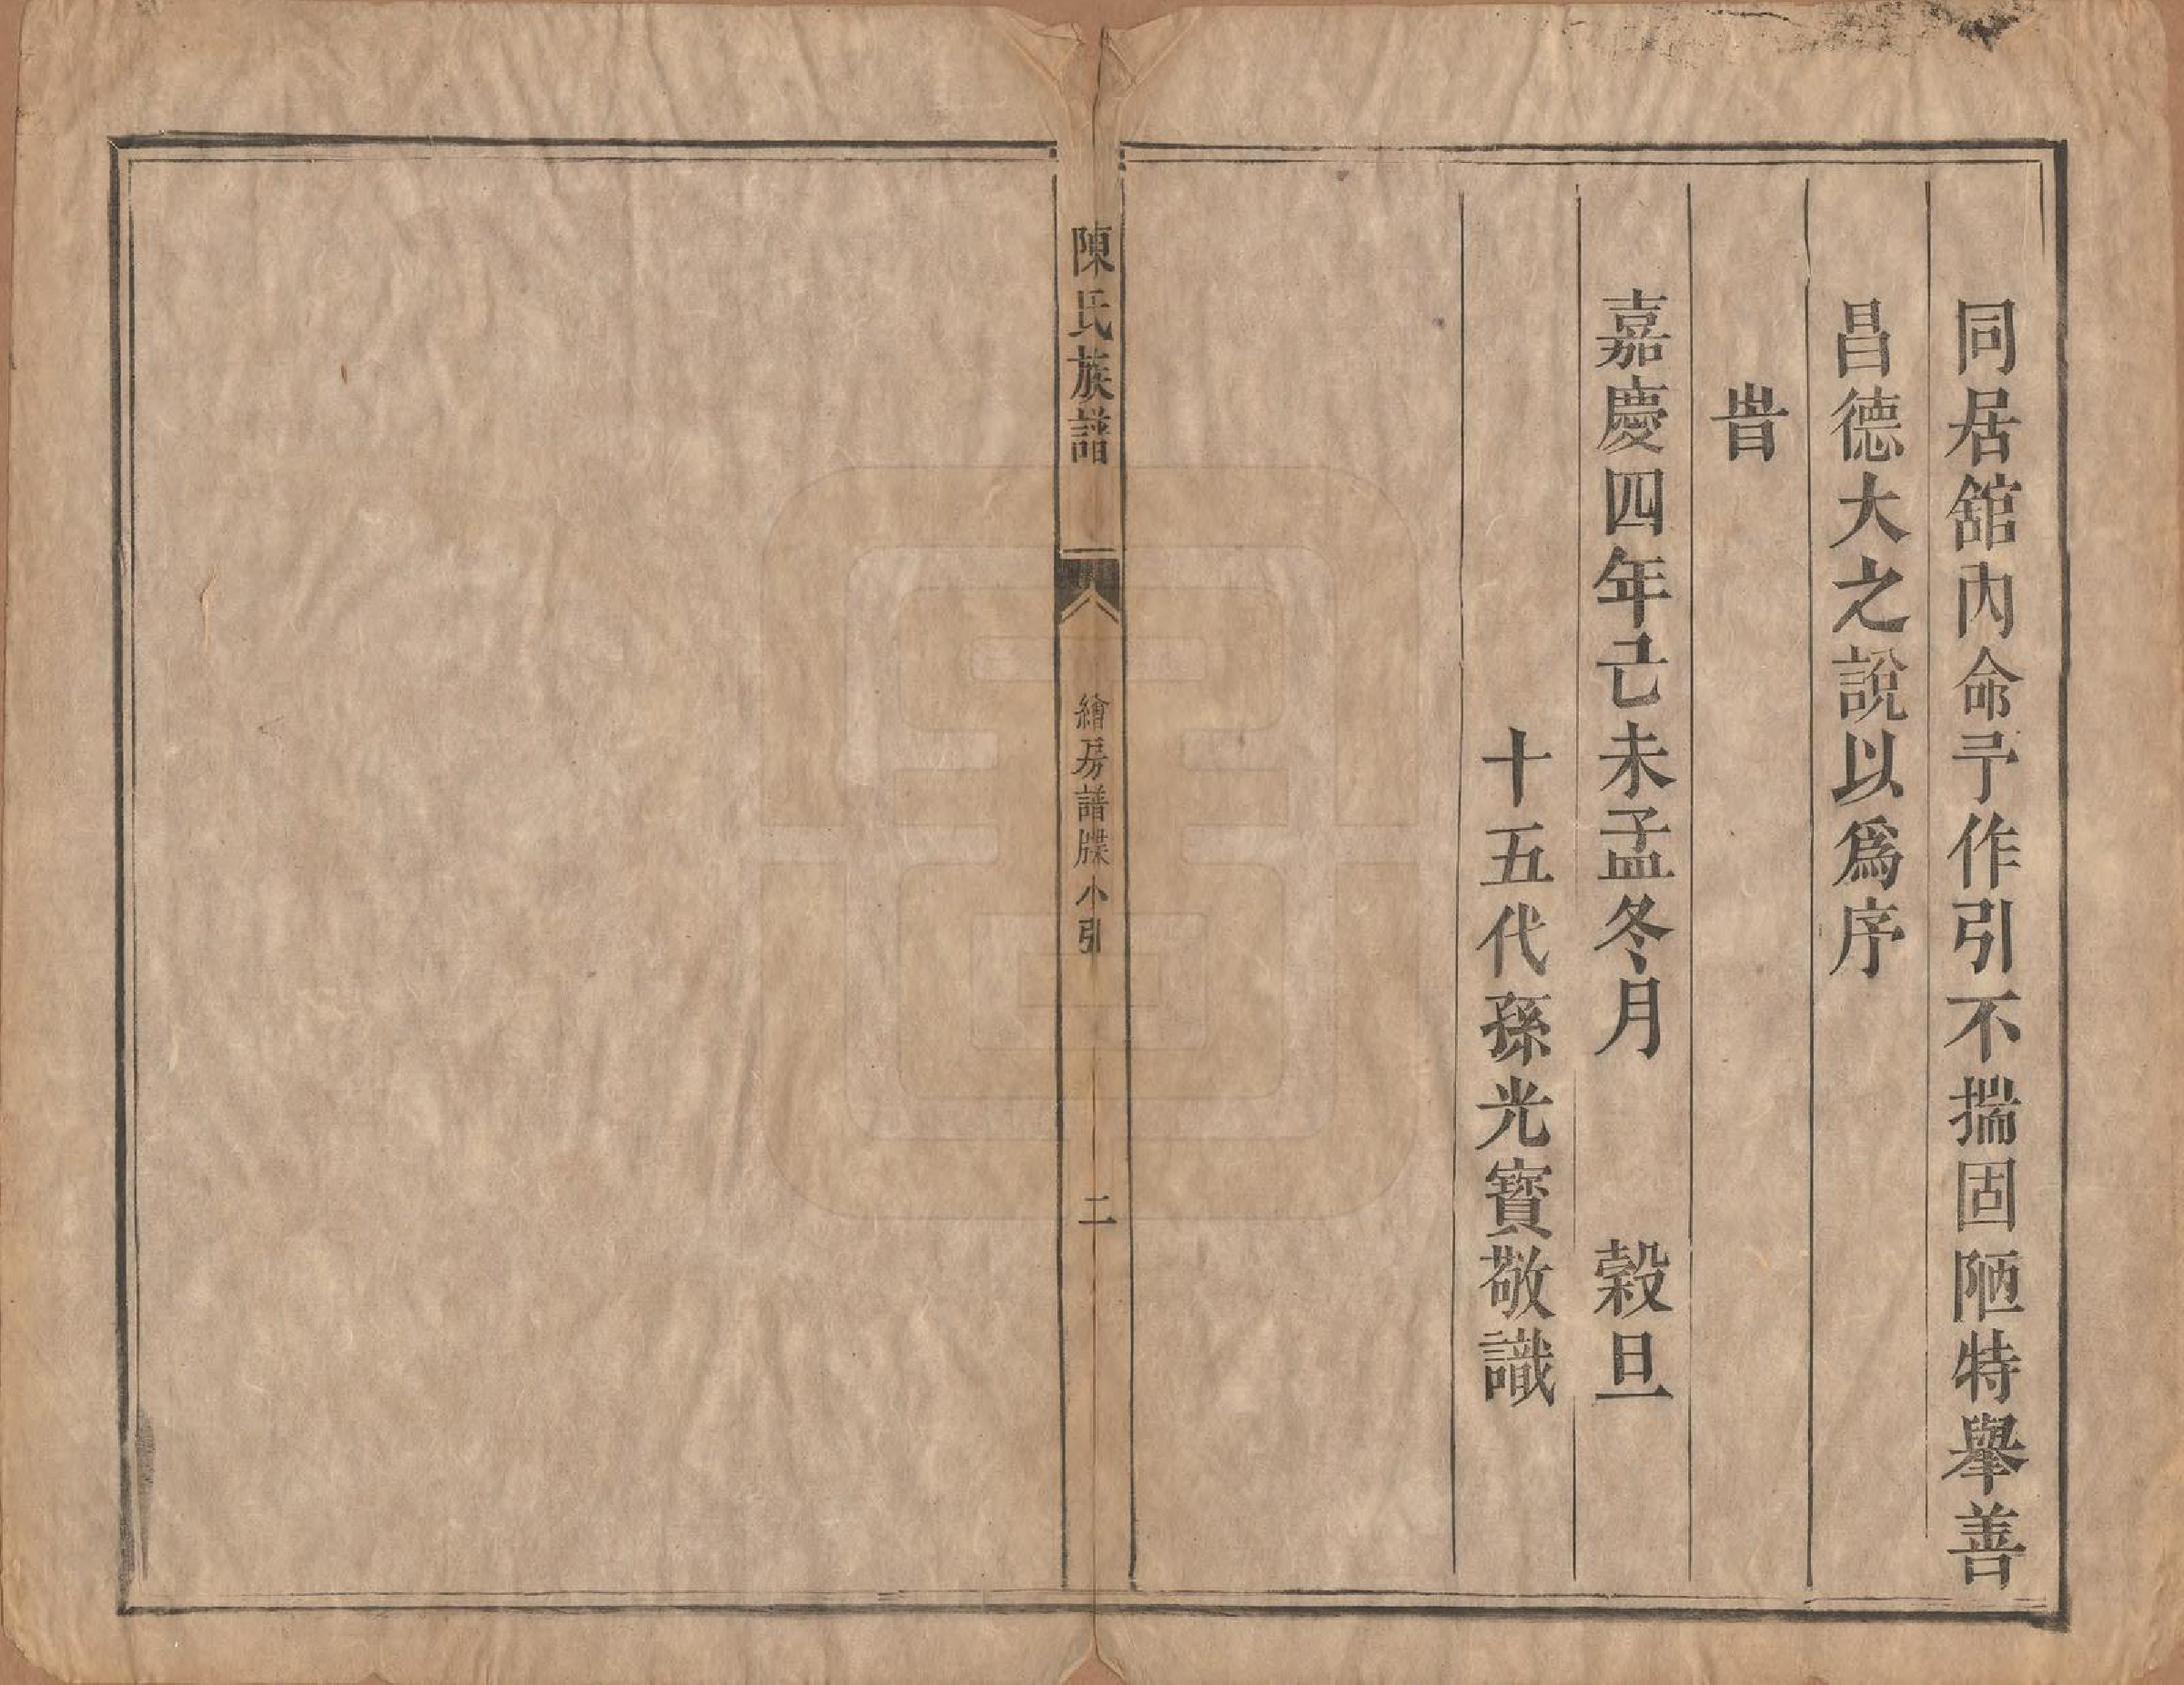 同居舘內命予作引不揣固陋特舉善
昌德大之說以爲序
旹
嘉慶四年己未孟冬月　穀旦
十五代孫光寶敬識
陳氏族譜
繪房譜牒小引
二